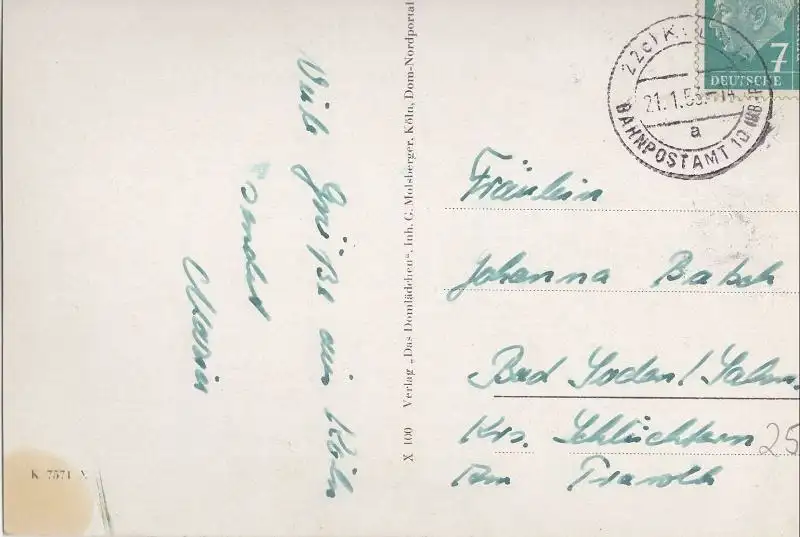 Viele Grüße aus Köln
sendet
Maria
X 100 Verlag „Das Domlädchen“, Inh. G. Molsberger, Köln, Dom-Nordportal
K 7571
7
DEUTSCHE
22c) K
21.1.53.-14
a
BAHNPOSTAMT 10
Fräulein
Johanna Batsch
Bad Soden/Salm.
Krs. Schlüchtern
Am
25